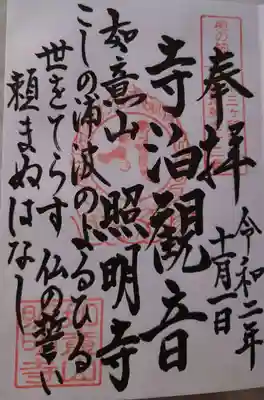 奉拝
令和二年
十月一日
寺泊観音
如意山 照明寺
こしの浦波のよるひる
世をてらす 仏の誓い
頼まぬはなし